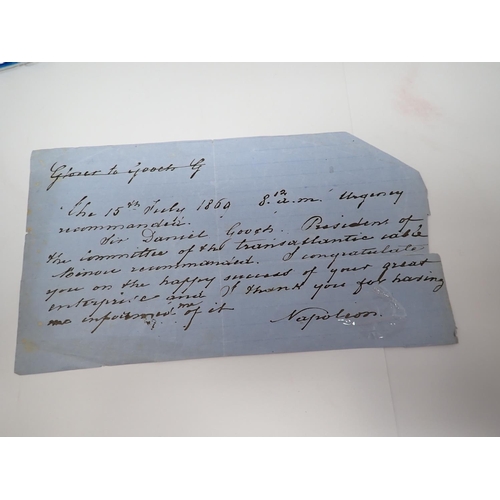 to Gooch G
The 15th July 1860 8.12 a.m. Urgency
recommanded.
Sir Daniel Gooch. President of
the committee of the transatlantic cable
recommanded. I congratulate
you on the happy success of your great
enterprise and I thank you for having
me informed of it
Napoleon.